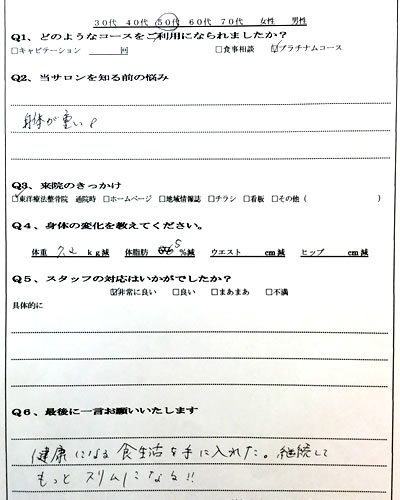 30代 40代 50代 60代 70代 女性 男性
Q1、どのようなコースをご利用になられましたか?
□キャビテーション 回 □食事相談 ☑プラチナムコース
Q2、当サロンを知る前の悩み
身体が重い。
Q3、来院のきっかけ
☑東洋療法整骨院 通院時 □ホームページ □地域情報誌 □チラシ □看板 □その他( )
Q4、身体の変化を教えてください。
体重 kg減 体脂肪 5%減 ウエスト cm減 ヒップ cm減
Q5、スタッフの対応はいかがでしたか?
☑非常に良い □良い □まあまあ □不満
具体的に
Q6、最後に一言お願いいたします
健康になる食生活を手に入れた。継続して
もっとスリムになる!!